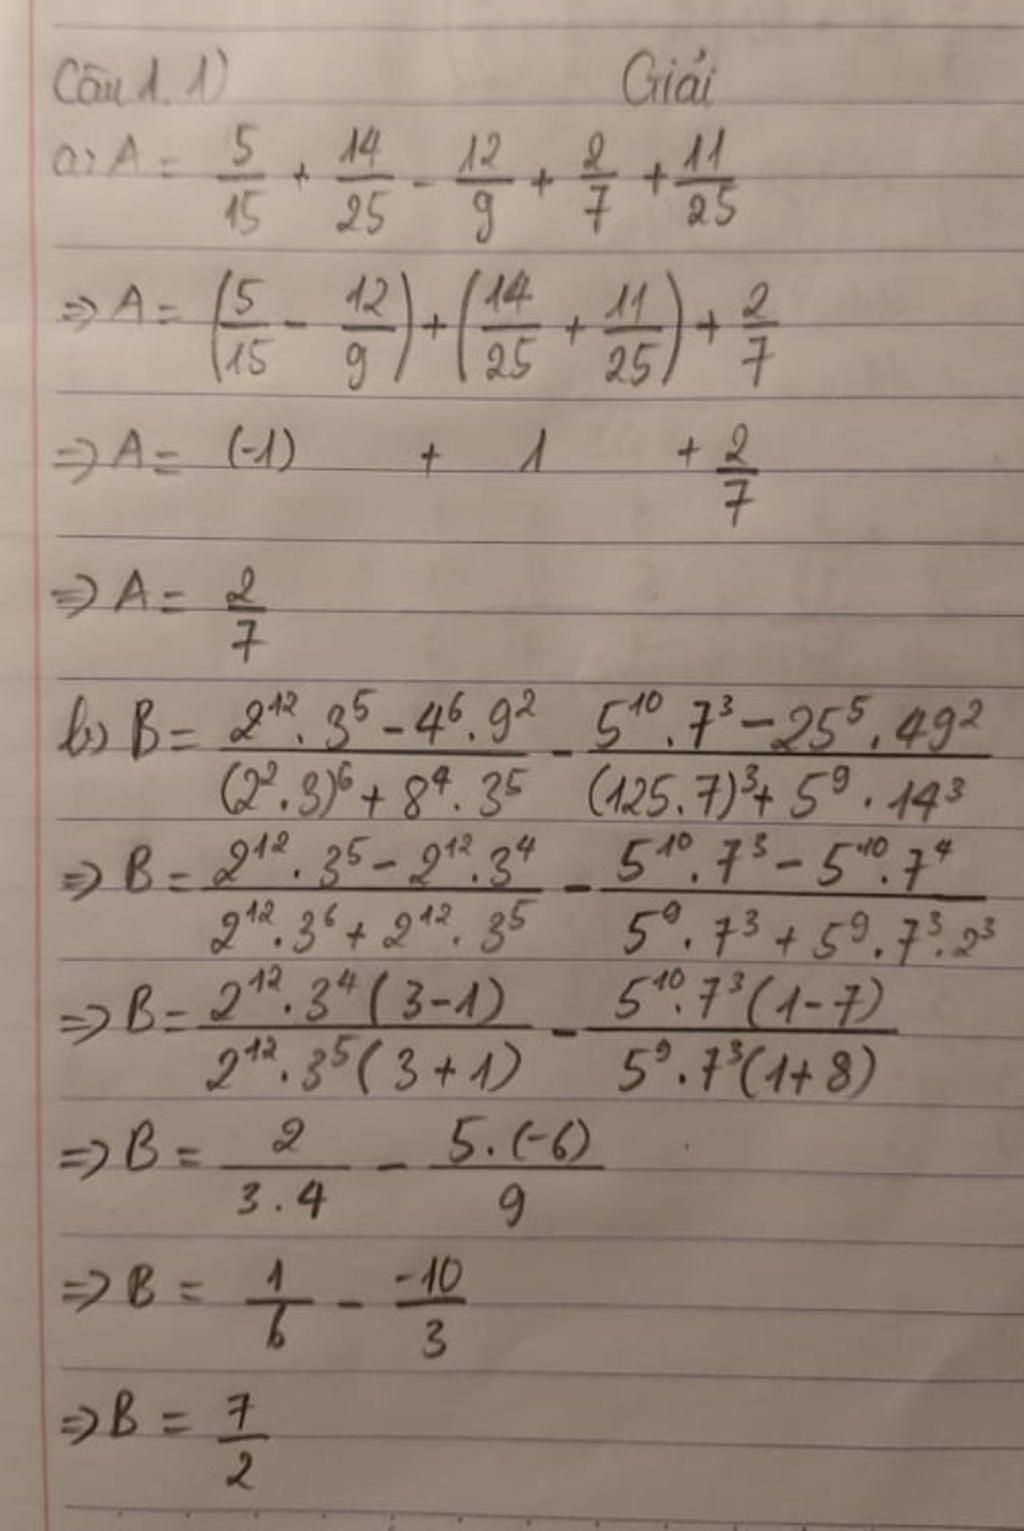 Câu 1. 1) Giải
a) A = 5/15 + 14/25 - 12/9 + 2/7 + 11/25
=> A = (5/15 - 12/9) + (14/25 + 11/25) + 2/7
=> A = (-1) + 1 + 2/7
=> A = 2/7
b) B = (2^12 . 3^5 - 4^6 . 9^2)/((2^2 . 3)^6 + 8^4 . 3^5) - (5^10 . 7^3 - 25^5 . 49^2)/((125 . 7)^3 + 5^9 . 14^3)
=> B = (2^12 . 3^5 - 2^12 . 3^4)/(2^12 . 3^6 + 2^12 . 3^5) - (5^10 . 7^3 - 5^10 . 7^4)/(5^9 . 7^3 + 5^9 . 7^3 . 2^3)
=> B = (2^12 . 3^4 (3 - 1))/(2^12 . 3^5 (3 + 1)) - (5^10 . 7^3 (1 - 7))/(5^9 . 7^3 (1 + 8))
=> B = 2/(3 . 4) - (5 . (-6))/9
=> B = 1/6 - -10/3
=> B = 7/2